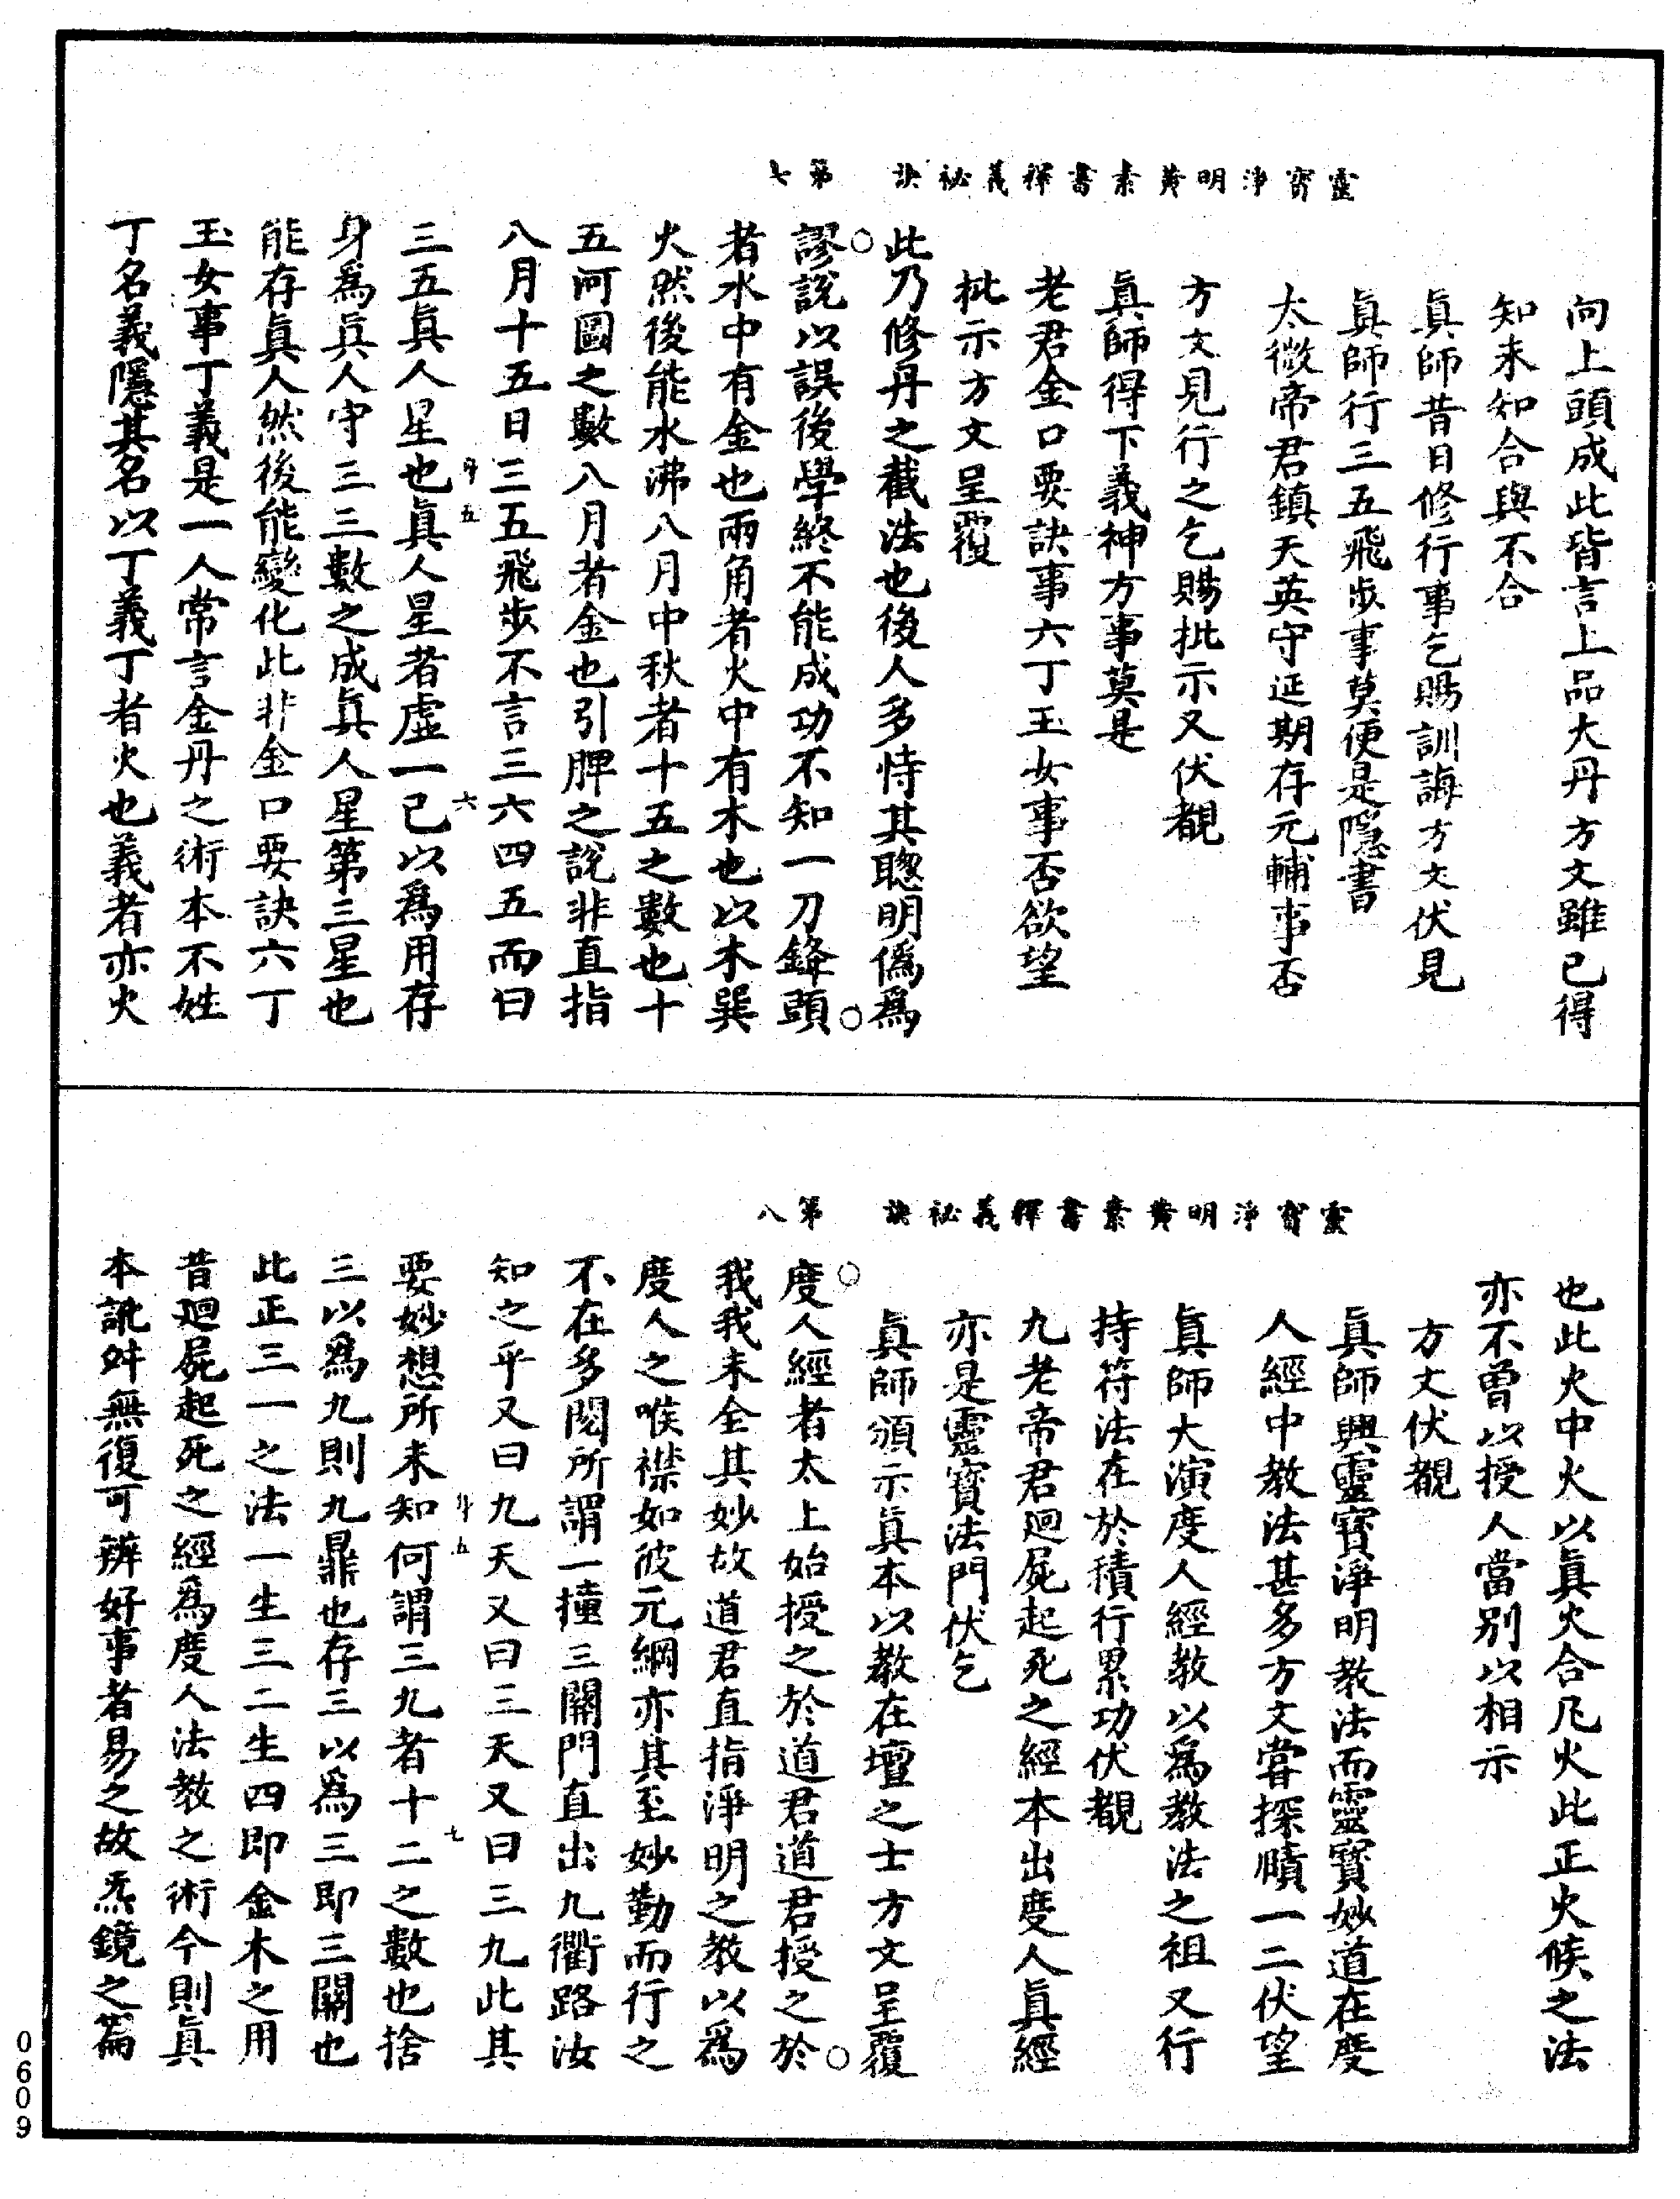 靈寶淨明黃素書釋義祕訣　第七
向上頭成此皆言上品大丹方文雖已得
知未知合與不合
真師昔日修行事乞賜訓誨方文伏見
真師行三五飛步事莫便是隱書
太微帝君鎮天英守延期存元輔事否
方文見行之乞賜批示又伏覩
真師得下義神方事莫是
老君金口要訣事六丁玉女事否欲望
批示方文呈覆
此乃修丹之截法也後人多恃其聰明僞爲
謬說以誤後學終不能成功不知一刀鋒頭
者水中有金也兩角者火中有木也以木巽
火然後能水沸八月中秋者十五之數也十
五河圖之數八月者金也引脾之說非直指
八月十五日三五飛步不言三六四五而曰
三五真人星也真人星者虛一己以爲用存
身爲真人守三三數之成真人星第三星也
能存真人然後能變化此非金口要訣六丁
玉女事丁義是一人常言金丹之術本不姓
丁名義隱其名以丁義丁者火也義者亦火
靈寶淨明黃素書釋義祕訣　第八
也此火中火以真火合凡火此正火候之法
亦不曾以授人當別以相示
方文伏覩
真師興靈寶淨明教法而靈寶妙道在度
人經中教法甚多方文嘗探賾一二伏望
真師大演度人經教以爲教法之祖又行
持符法在於積行累功伏覩
九老帝君迴屍起死之經本出度人真經
亦是靈寶法門伏乞
真師頒示真本以教在壇之士方文呈覆
度人經者太上始授之於道君道君授之於
我我未全其妙故道君直指淨明之教以爲
度人之喉襟如彼元綱亦其至妙勤而行之
不在多閱所謂一撞三關門直出九衢路汝
知之乎又曰九天又曰三天又曰三九此其
要妙想所未知何謂三九者十二之數也捨
三以爲九則九鼎也存三以爲三即三關也
此正三一之法一生三二生四即金木之用
昔迴屍起死之經爲度人法教之術今則真
本訛舛無復可辨好事者易之故炁鏡之篇
0609